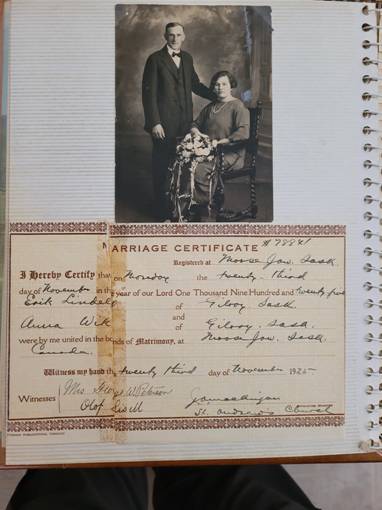 MARRIAGE CERTIFICATE # 78841
Registered at Moose Jaw, Sask.
I Hereby Certify that on Monday the twenty third
day of November in the year of our Lord One Thousand Nine Hundred and twenty five
Erik of Gilroy Sask
and
Anna Wik of Gilroy, Sask.
were by me united in the bonds of Matrimony, at Moose Jaw, Sask.
Canada.
Witness my hand the twenty third day of November 1925
Witnesses Mrs. George W. Peterson
Olof St. Andrew's Church